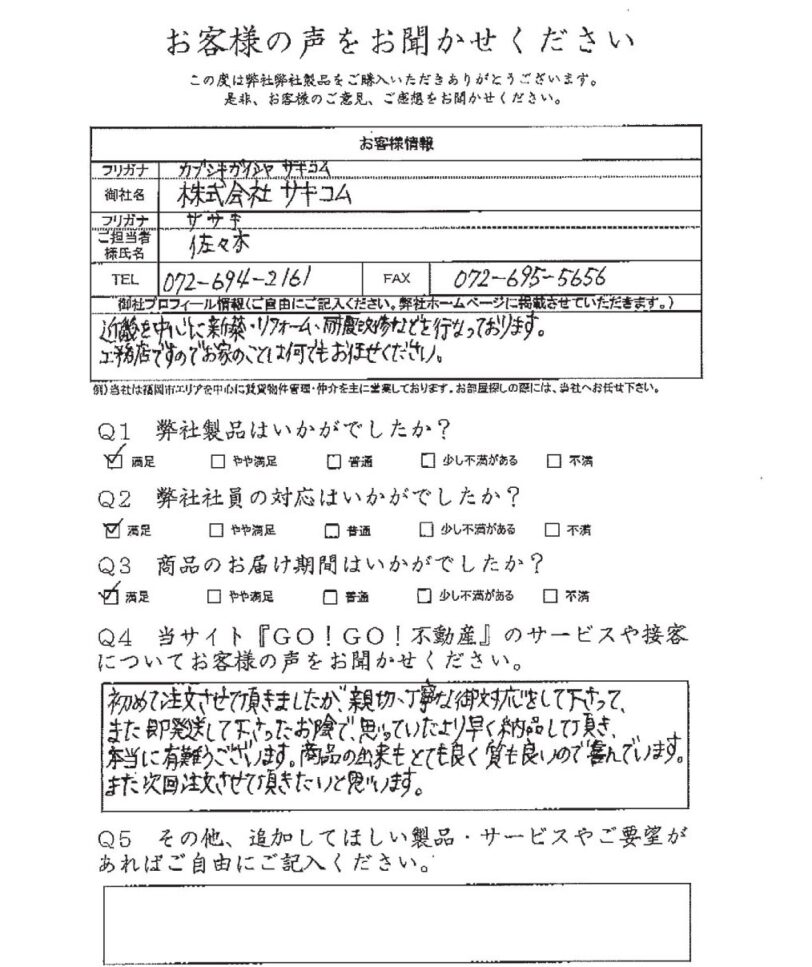 お客様の声をお聞かせください
この度は弊社弊社製品をご購入いただきありがとうございます。
是非、お客様のご意見、ご感想をお聞かせください。
お客様情報
フリガナ カブシキガイシャ サキコム
御社名 株式会社 サキコム
フリガナ ササキ
ご担当者様氏名 佐々木
TEL 072-694-2161 FAX 072-695-5656
御社プロフィール情報(ご自由にご記入ください。弊社ホームページに掲載させていただきます。)
近畿を中心に新築・リフォーム、耐震改修などを行なっております。
工務店ですのでお家のことは何でもお任せください。
例)当社は福岡市エリアを中心に賃貸物件管理・仲介を主に営業しております。お部屋探しの際には、当社へお任せ下さい。
Q1 弊社製品はいかがでしたか?
☑ 満足 □ やや満足 □ 普通 □ 少し不満がある □ 不満
Q2 弊社社員の対応はいかがでしたか?
☑ 満足 □ やや満足 □ 普通 □ 少し不満がある □ 不満
Q3 商品のお届け期間はいかがでしたか?
☑ 満足 □ やや満足 □ 普通 □ 少し不満がある □ 不満
Q4 当サイト『GO!GO!不動産』のサービスや接客
についてお客様の声をお聞かせください。
初めて注文させて頂きましたが、親切、丁寧な御対応をして下さって、
また即発送して下さったお陰で、思っていたより早く納品して頂き、
本当に有難うございます。商品の出来もとても良く質も良いので喜んでいます。
また次回注文させて頂きたいと思います。
Q5 その他、追加してほしい製品・サービスやご要望が
あればご自由にご記入ください。